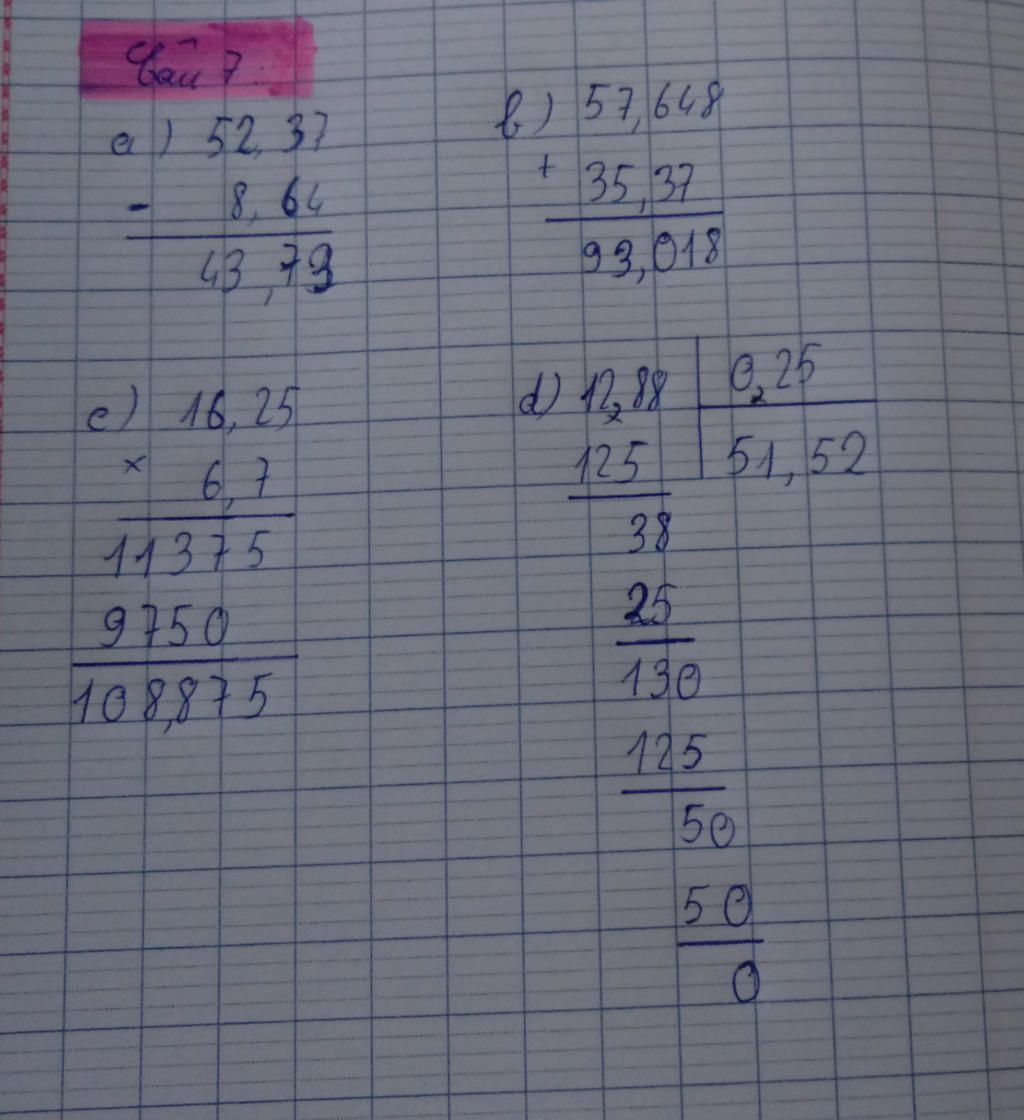 Bài 7:
a) 52,37
- 8,64
43,73
b) 57,648
+ 35,37
93,018
c) 16,25
× 6,7
11375
9750
108,875
d) 12,88 0,25
125 51,52
38
25
130
125
50
50
0